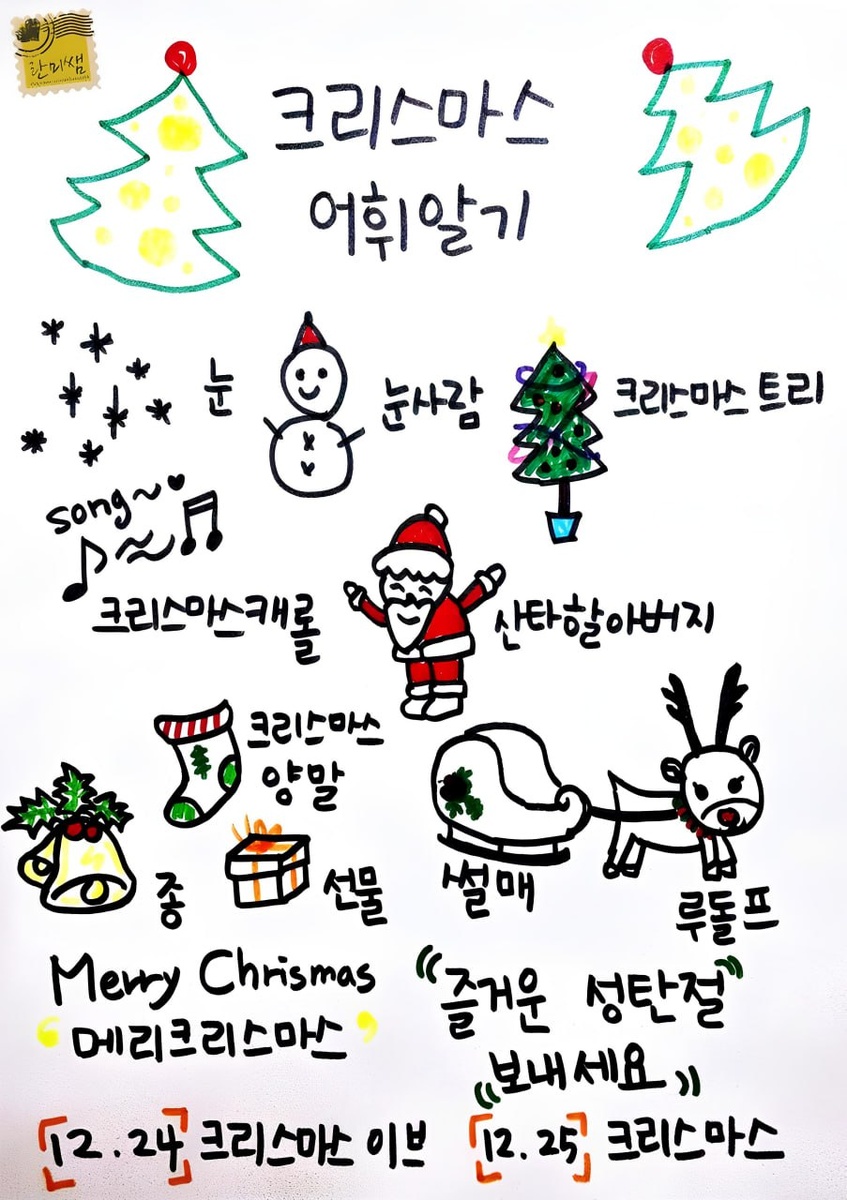 한미쌤
크리스마스
어휘알기
눈
눈사람
크리스마스 트리
song~
크리스마스캐롤
산타할아버지
크리스마스
양말
종
선물
썰매
루돌프
Merry Chrismas
"즐거운 성탄절"
메리크리스마스
보내세요
12.24 크리스마스 이브
12.25 크리스마스